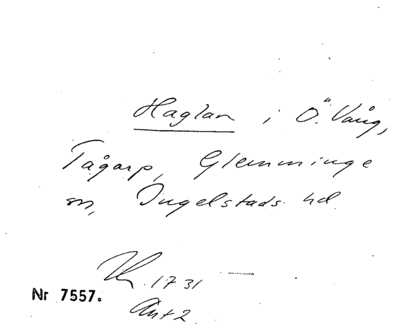 Haglan i Ö. Vång,
Tågarp, Glemminge
sn, Ingelstads hd.
1731
Nr 7557.
Ant 2